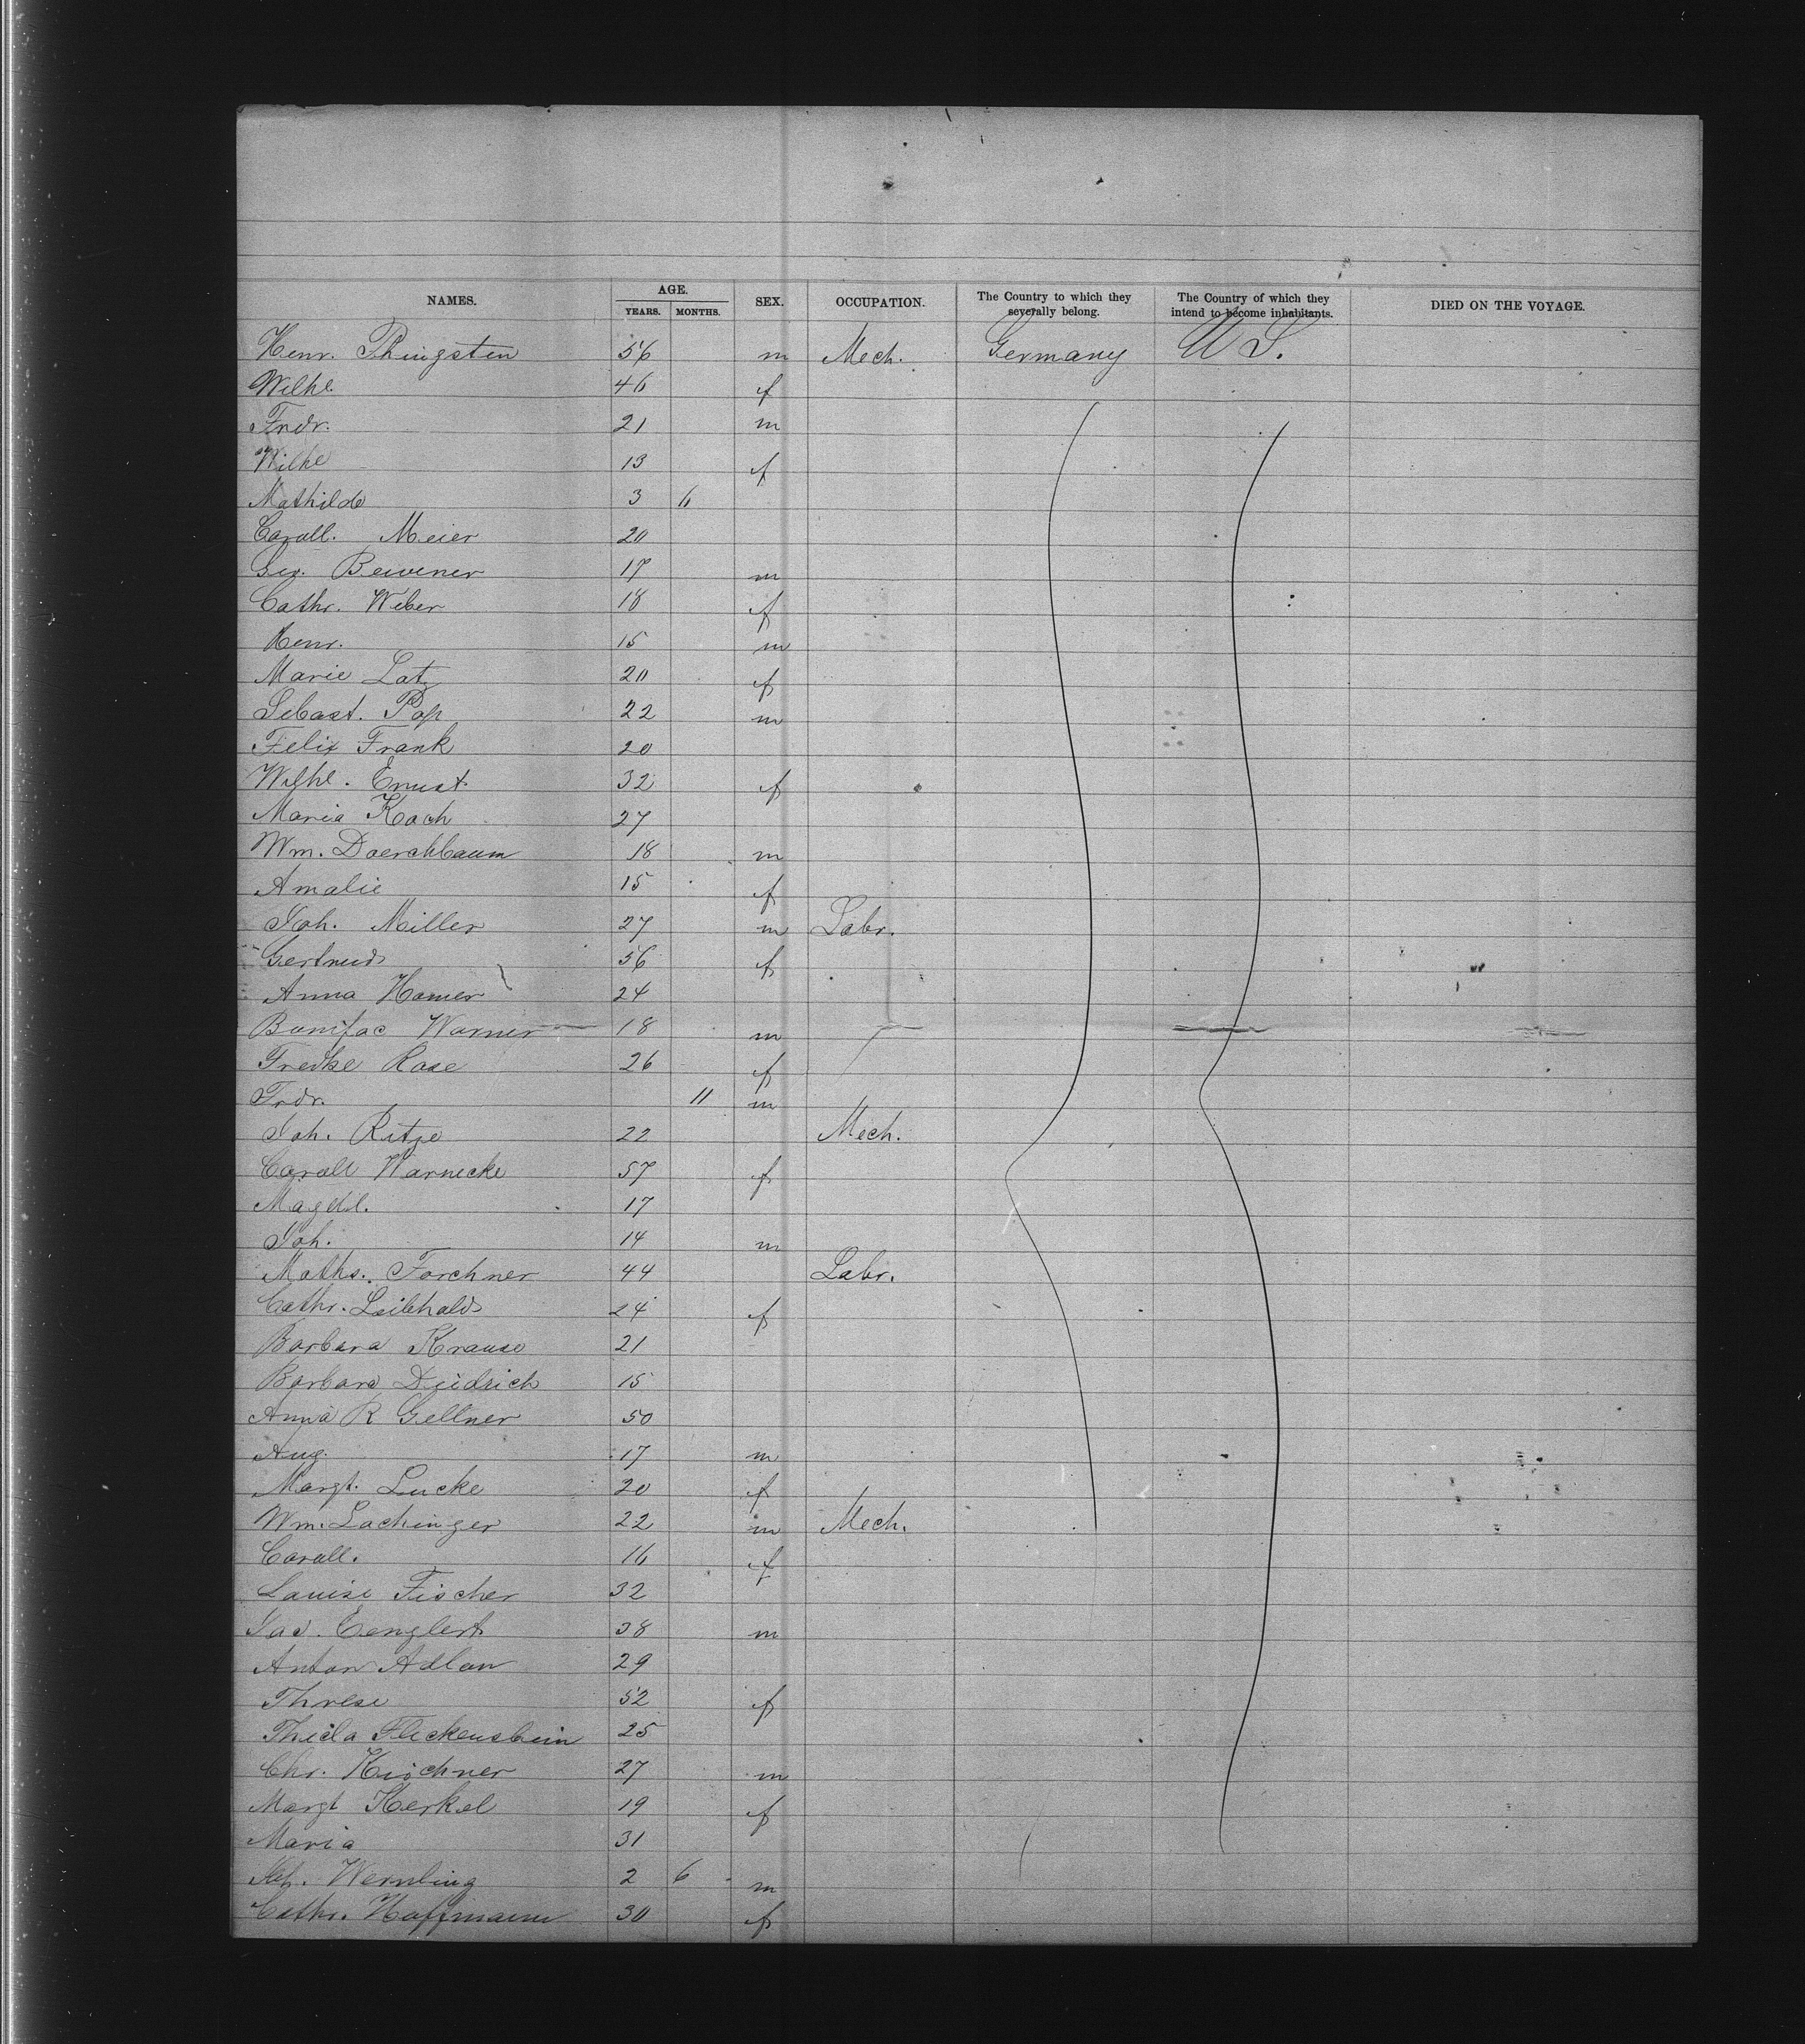 NAMES. AGE. YEARS. MONTHS. SEX. OCCUPATION. The Country to which they severally belong. The Country of which they intend to become inhabitants. DIED ON THE VOYAGE.
Henr. Phingsten 56 m Mech. Germany U S.
Wilhe. 46 f
Fridr. 21 m
Wilhe 13 f
Mathilde 3 6
Caroll. Meier 20
Geo. Bewener 17 m
Cathr. Weber 18 f
Henr. 15 m
Marie Latz 20 f
Sebast. Pop 22 m
Felix Frank 20
Wilhl. Ernst. 32 f
Maria Koch 27
Wm. Doerchbaum 18 m
Amalie 15 f
Joh. Miller 27 m Labr.
Gertrud 56 f
Anna Homer 24
Bonifac Warner 18 m
Fredke Rose 26 f
Frdr. 11 m
Joh. Ritze 22 Mech.
Caroll Warnecke 57 f
Magdl. 17
Joh. 14 m
Maths. Forchner 44 Labr.
Cathr. Leibhold 24 f
Barbara Krause 21
Barbara Diedrich 15
Anna R Gellner 50
Aug. 17 m
Margt. Lucke 20 f
Wm. Lachinger 22 m Mech.
Caroll. 16 f
Louise Fischer 32
38 m
Anton Adlon 29
Threse 52 f
Flickenstein 25
Chr. Kischner 27 m
Margt Kerkel 19 f
Maria 31
Wernling 2 6 m
Cathr. Hoffmann 30 f